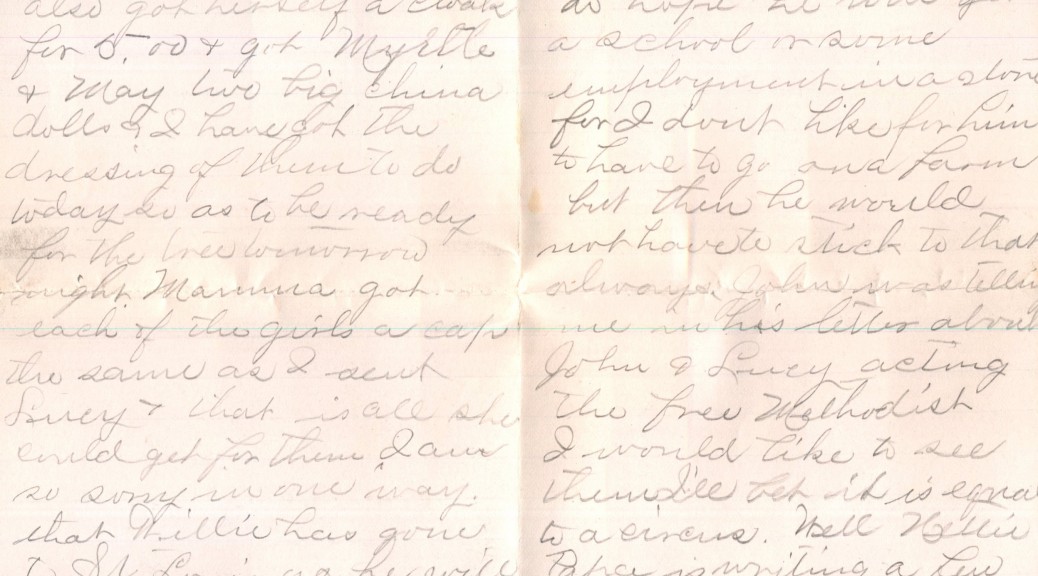 also got herself a cloak
for 5.00 & got Myrtle
& May two big china
dolls & I have got the
dressing of them to do
today so as to be ready
for the tree tomorrow
night. Mamma got
each of the girls a cap
the same as I sent
Lucy & that is all she
could get for them I am
so sorry in one way.
that Willie has gone
to St Louis as he will
do hope he will
a school or some
employment in a store
for I dont like for him
to have to go on a farm
but then he would
not have to stick to that
always. John was tellin
me in his letter about
John & Lucy acting
the free Methodist
I would like to see
them I'll bet it is equa
to a circus. Well Nellie
is writing a few